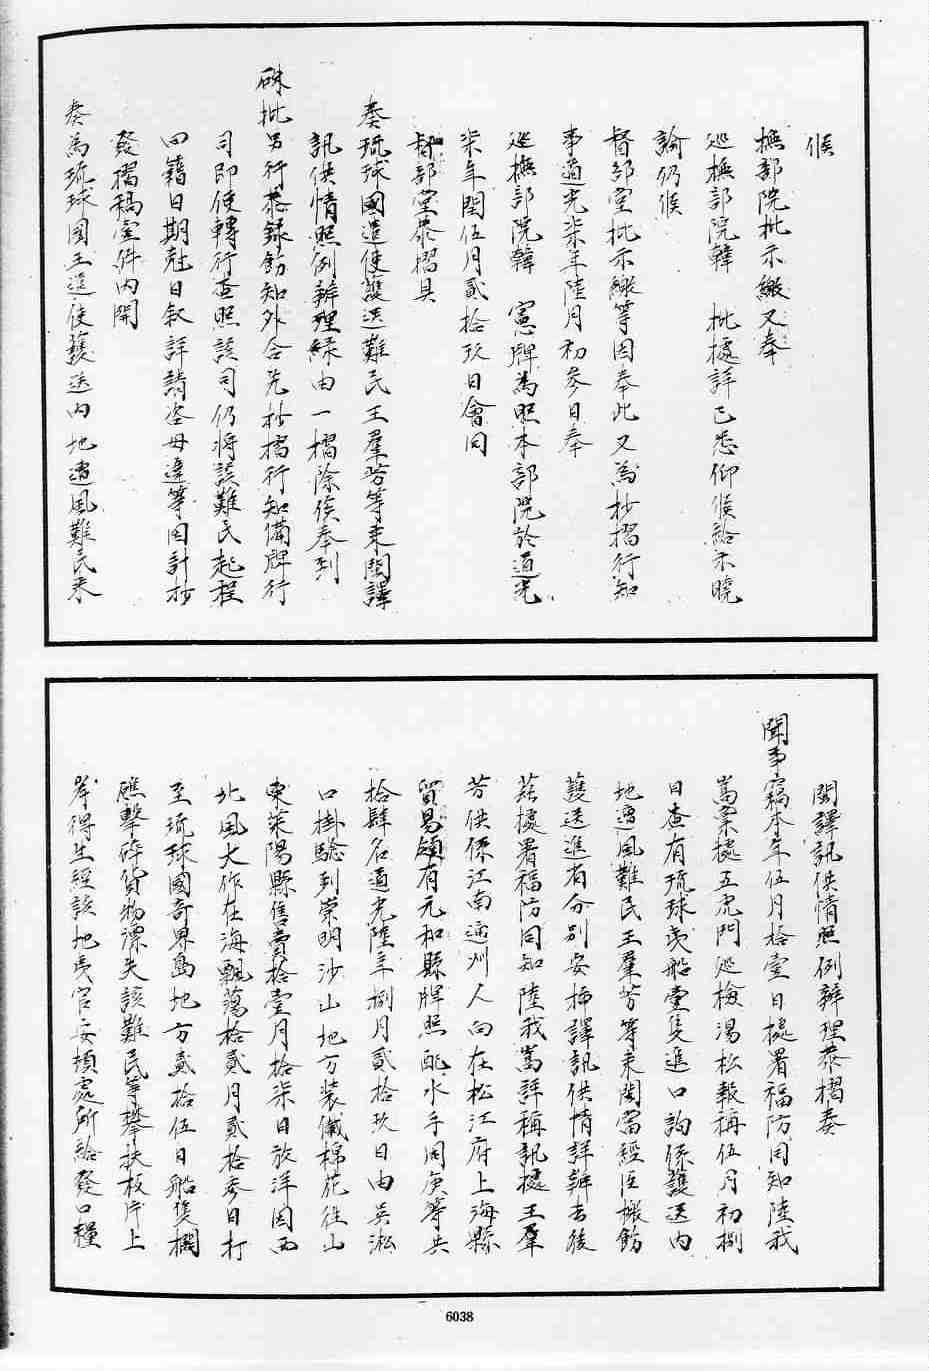 候
撫部院批示繳又奉
巡撫部院韓　批據詳已悉仰候給示曉
諭仍候
督部堂批示繳等因奉此又為抄摺行知
事道光柒年陸月初叄日奉
巡撫部院韓　憲牌為照本部院於道光
柒年閏伍月貳拾玖日會同
督部堂恭摺具
奏琉球國遣使護送難民王羣芳等來閩譯
訊供情照例辦理緣由一摺除俟奉到
硃批另行恭錄飭知外合先抄摺行知備牌行
司即便轉行查照該司仍將該難民起程
回籍日期尅日叙詳請咨毋違等因計抄
發摺稿壹件內開
奏為琉球國王遣使護送內地遭風難民來
閩譯訊供情照例辦理恭摺奏
聞事竊本年伍月拾壹日據署福防同知陸我
嵩稟據五虎門巡檢湯松報稱伍月初捌
日查有琉球夷船壹隻進口詢係護送內
地遭風難民王羣芳等來閩當經臣檄飭
護送進有分別安插譯訊供情詳辦去後
茲據署福防同知陸我嵩詳稱訊據王羣
芳供係江南通州人向在松江府上海縣
貿易領有元和縣牌照配水手周庚等共
拾肆名道光陸年捌月貳拾玖日由吳淞
口掛驗到崇明沙山地方裝儎棉花往山
東萊陽縣售賣拾壹月拾柒日放洋因西
北風大作在海飄蕩拾貳月貳拾叄日打
至琉球國奇界島地方貳拾伍日船隻擱
礁擊碎貨物漂失該難民等攀扶板片上
岸得生經該地夷官安頓處所給發口糧
6038